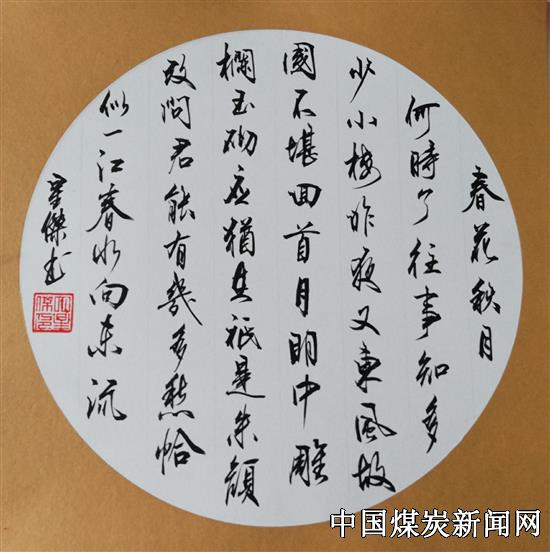 春花秋月
何時了往事知多
少小楼昨夜又東風故
國不堪回首月明中雕
欄玉砌应猶在祗是朱顔
改問君能有幾多愁恰
似一江春水向东流
星傑书
中国煤炭新闻网